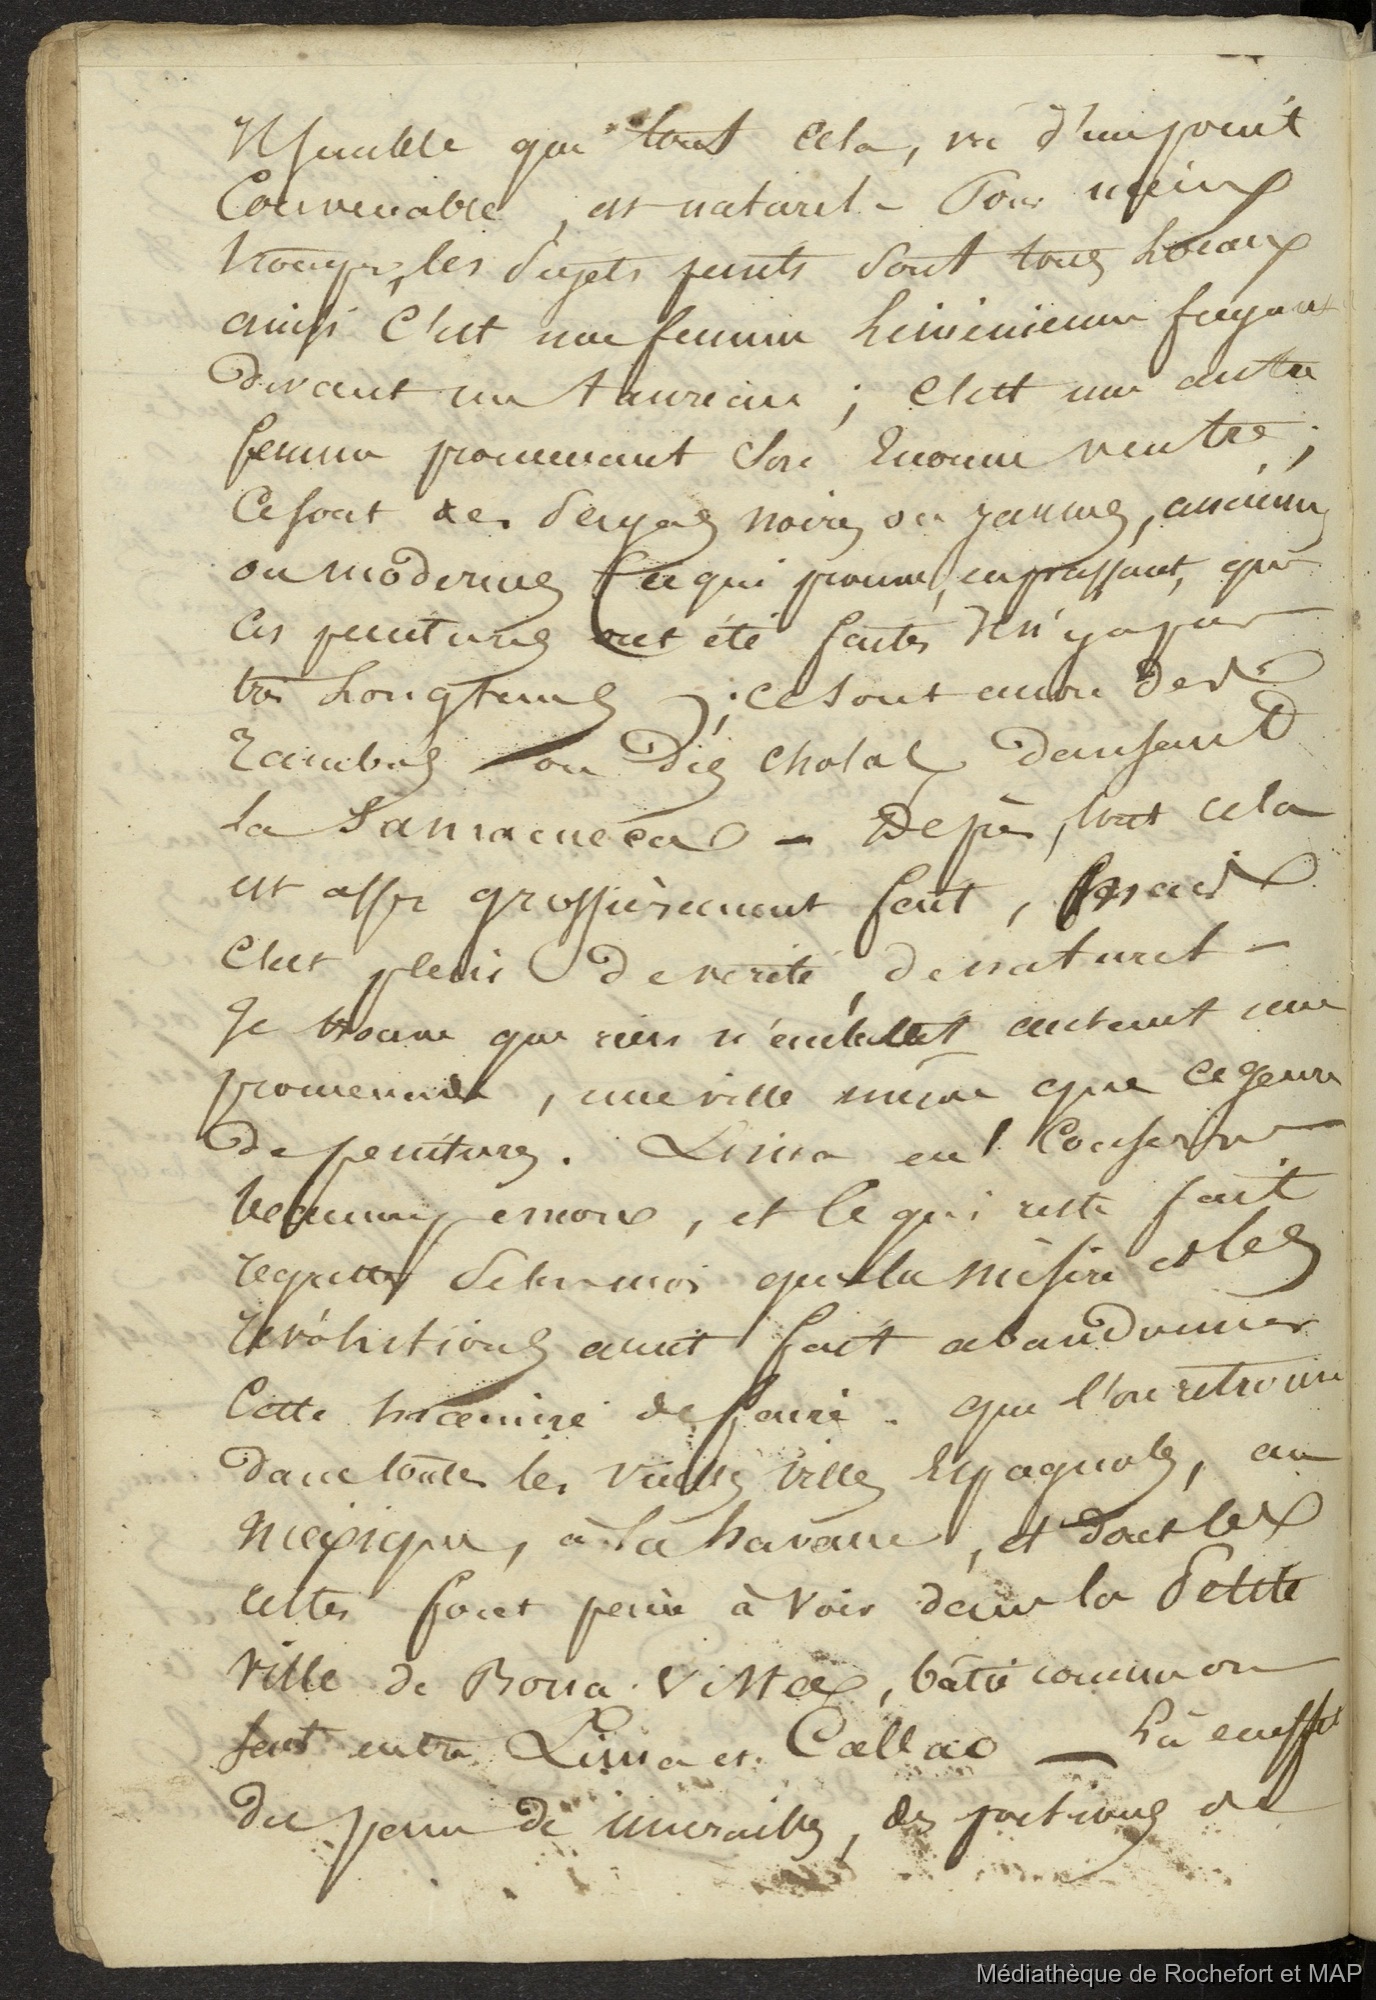 Il semble que tout cela, vu d'un point
Convenable, est naturel - Pour mieux
tromper, les sujets peints sont tous locaux
ainsi C'est une femme Liménienne fuyant
devant un taureau ; C'est une autre
femme promenant son Enorme ventre ;
Ce sont des Sayas noires ou jaunes, anciennes
ou modernes (ce qui prouve, en passant, que
Ces peintures ont été faites Il n'y a pas
très Longtems) ; ce sont encore des
Zambas ou des cholas dansant
La Samacueca - De près, tout cela
est assez grossièrement fait, mais
C'est plein de verité, de naturel -
Je trouve que rien n'embellit autant une
promenade, une ville même que ce genre
de peintures. Lima en Conserve
beaucoup encore, et Ce qui reste fait
regretter selon moi que la misère et les
révolutions aient fait abandonner
Cette manière de faire. que l'on retrouve
dans toutes les vieilles villes Espagnoles, au
Mexique, à La havane, et dont les
restes font peine à voir dans la Petite
ville de Bona Vista, bâtie comme on
sait entre Lima et Callao — Là en effet
des pans de murailles, des portions de
Médiathèque de Rochefort et MAP